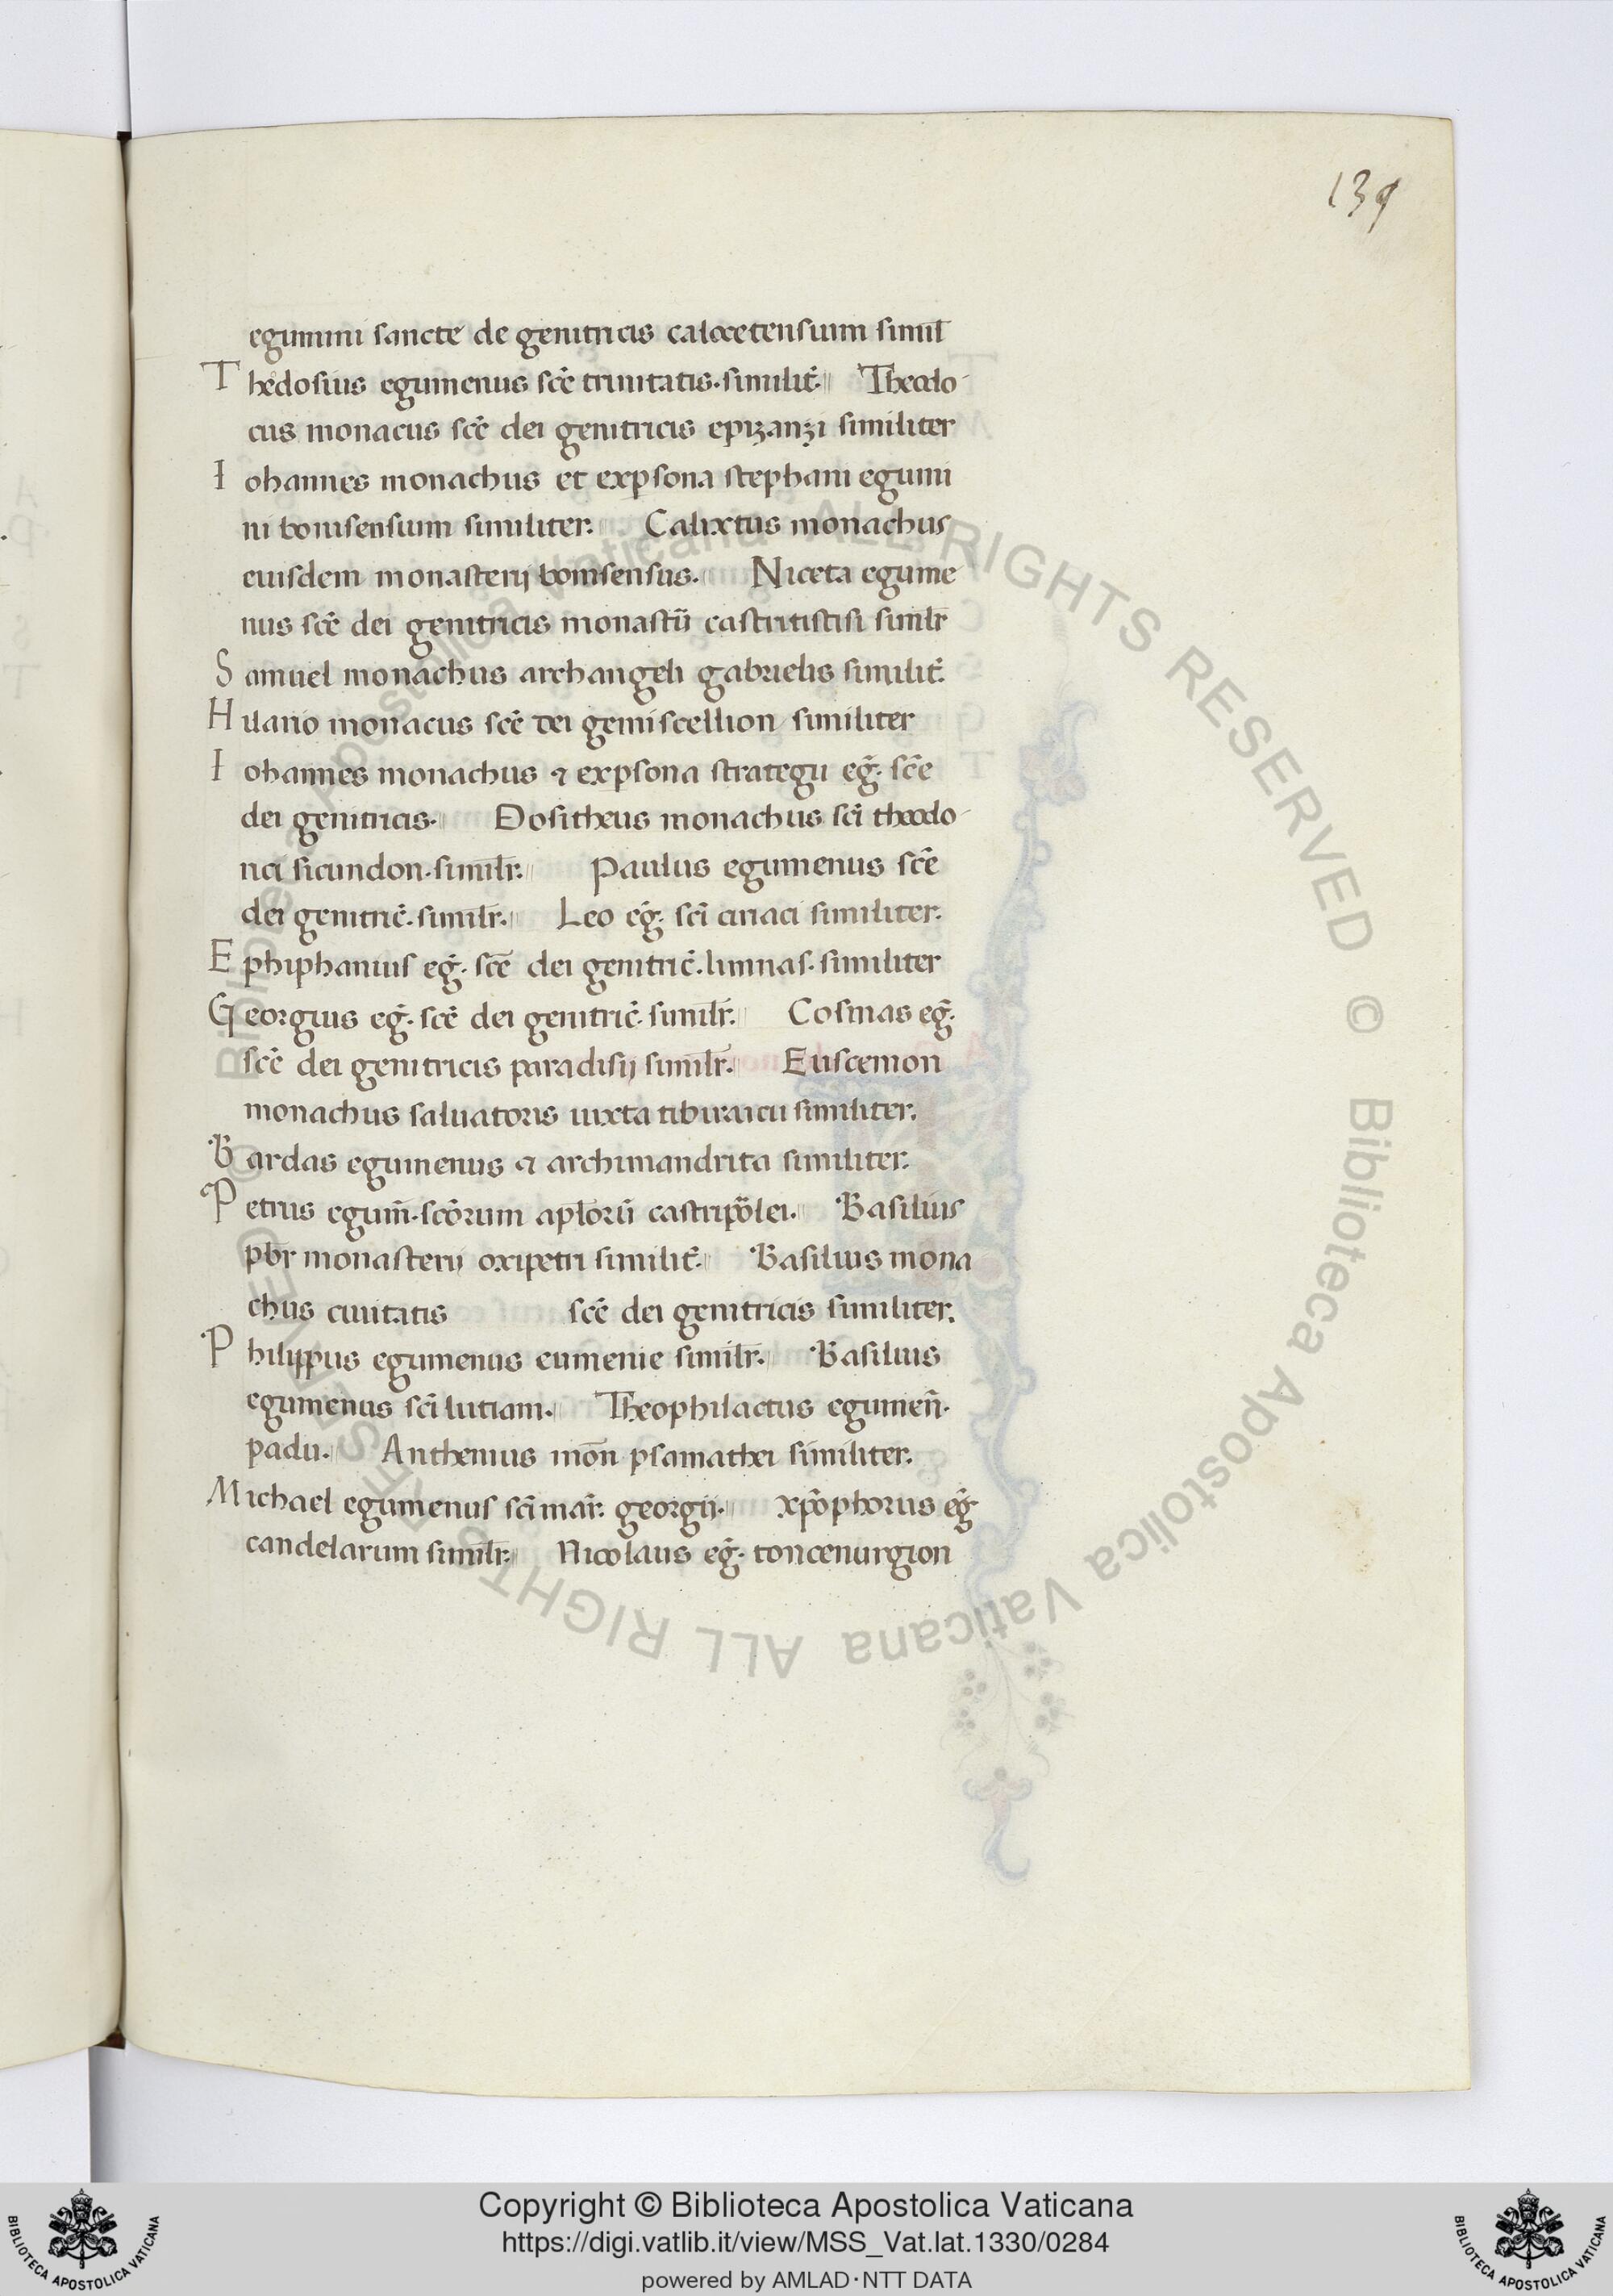 139
egumini sancte de genitricis caloxetensium simil̄
Thedosius egumenus scē trinitatis. similit̄. Theodo
cus monacus scē dei genitricis epizanzi similiter
Iohannes monachus et expsona stephani egumi
ni bonisensium similiter. Calixtus monachus
eiusdem monasterij bonisensus. Niceta egume
nus scē dei genitricis monastīi castritistisi similr̄
Samuel monachus archangeli gabrielis similit̄.
Hilario monacus scē dei gemiscellion similiter
Iohannes monachus ⁊ expsona strategii eḡ. scē
dei genitricis. Dositheus monachus scī theodo
nci sicundon. similr̄. Paulus egumenus scē
dei genitric̄. similr̄. Leo eḡ. scī ciriaci similiter.
Ephiphanius eḡ. scē dei genitric̄. limnas. similiter
Georgius eḡ. scē dei genitric̄. similr̄. Cosmas eḡ.
scē dei genitricis paradisij similr̄. Euscemon
monachus saluatoris iuxta tiburaicu similiter.
Bardas egumenus ⁊ archimandrita similiter.
Petrus egum̄. scōrum aplōrū castripōlei. Basilius
pbr̄ monasterij oxipetri similit̄. Basilius mona
chus ciuitatis scē dei genitricis similiter.
Philippus egumenus eumenie similr̄. Basilius
egumenus scī lutiam. Theophilactus egumen̄.
padu. Anthemius mōn psamathei similiter.
Michael egumenus scī mar̄. georgij. xp̄ophorus eḡ
candelarum similr̄. Nicolaus eḡ. toncenurgion
Biblioteca Apostolica Vaticana ALL RIGHTS RESERVED © Biblioteca Apostolica Vaticana ALL RIGHTS RESERVED ©
Copyright © Biblioteca Apostolica Vaticana
https://digi.vatlib.it/view/MSS_Vat.lat.1330/0284
powered by AMLAD·NTT DATA
BIBLIOTECA APOSTOLICA VATICANA
BIBLIOTECA APOSTOLICA VATICANA